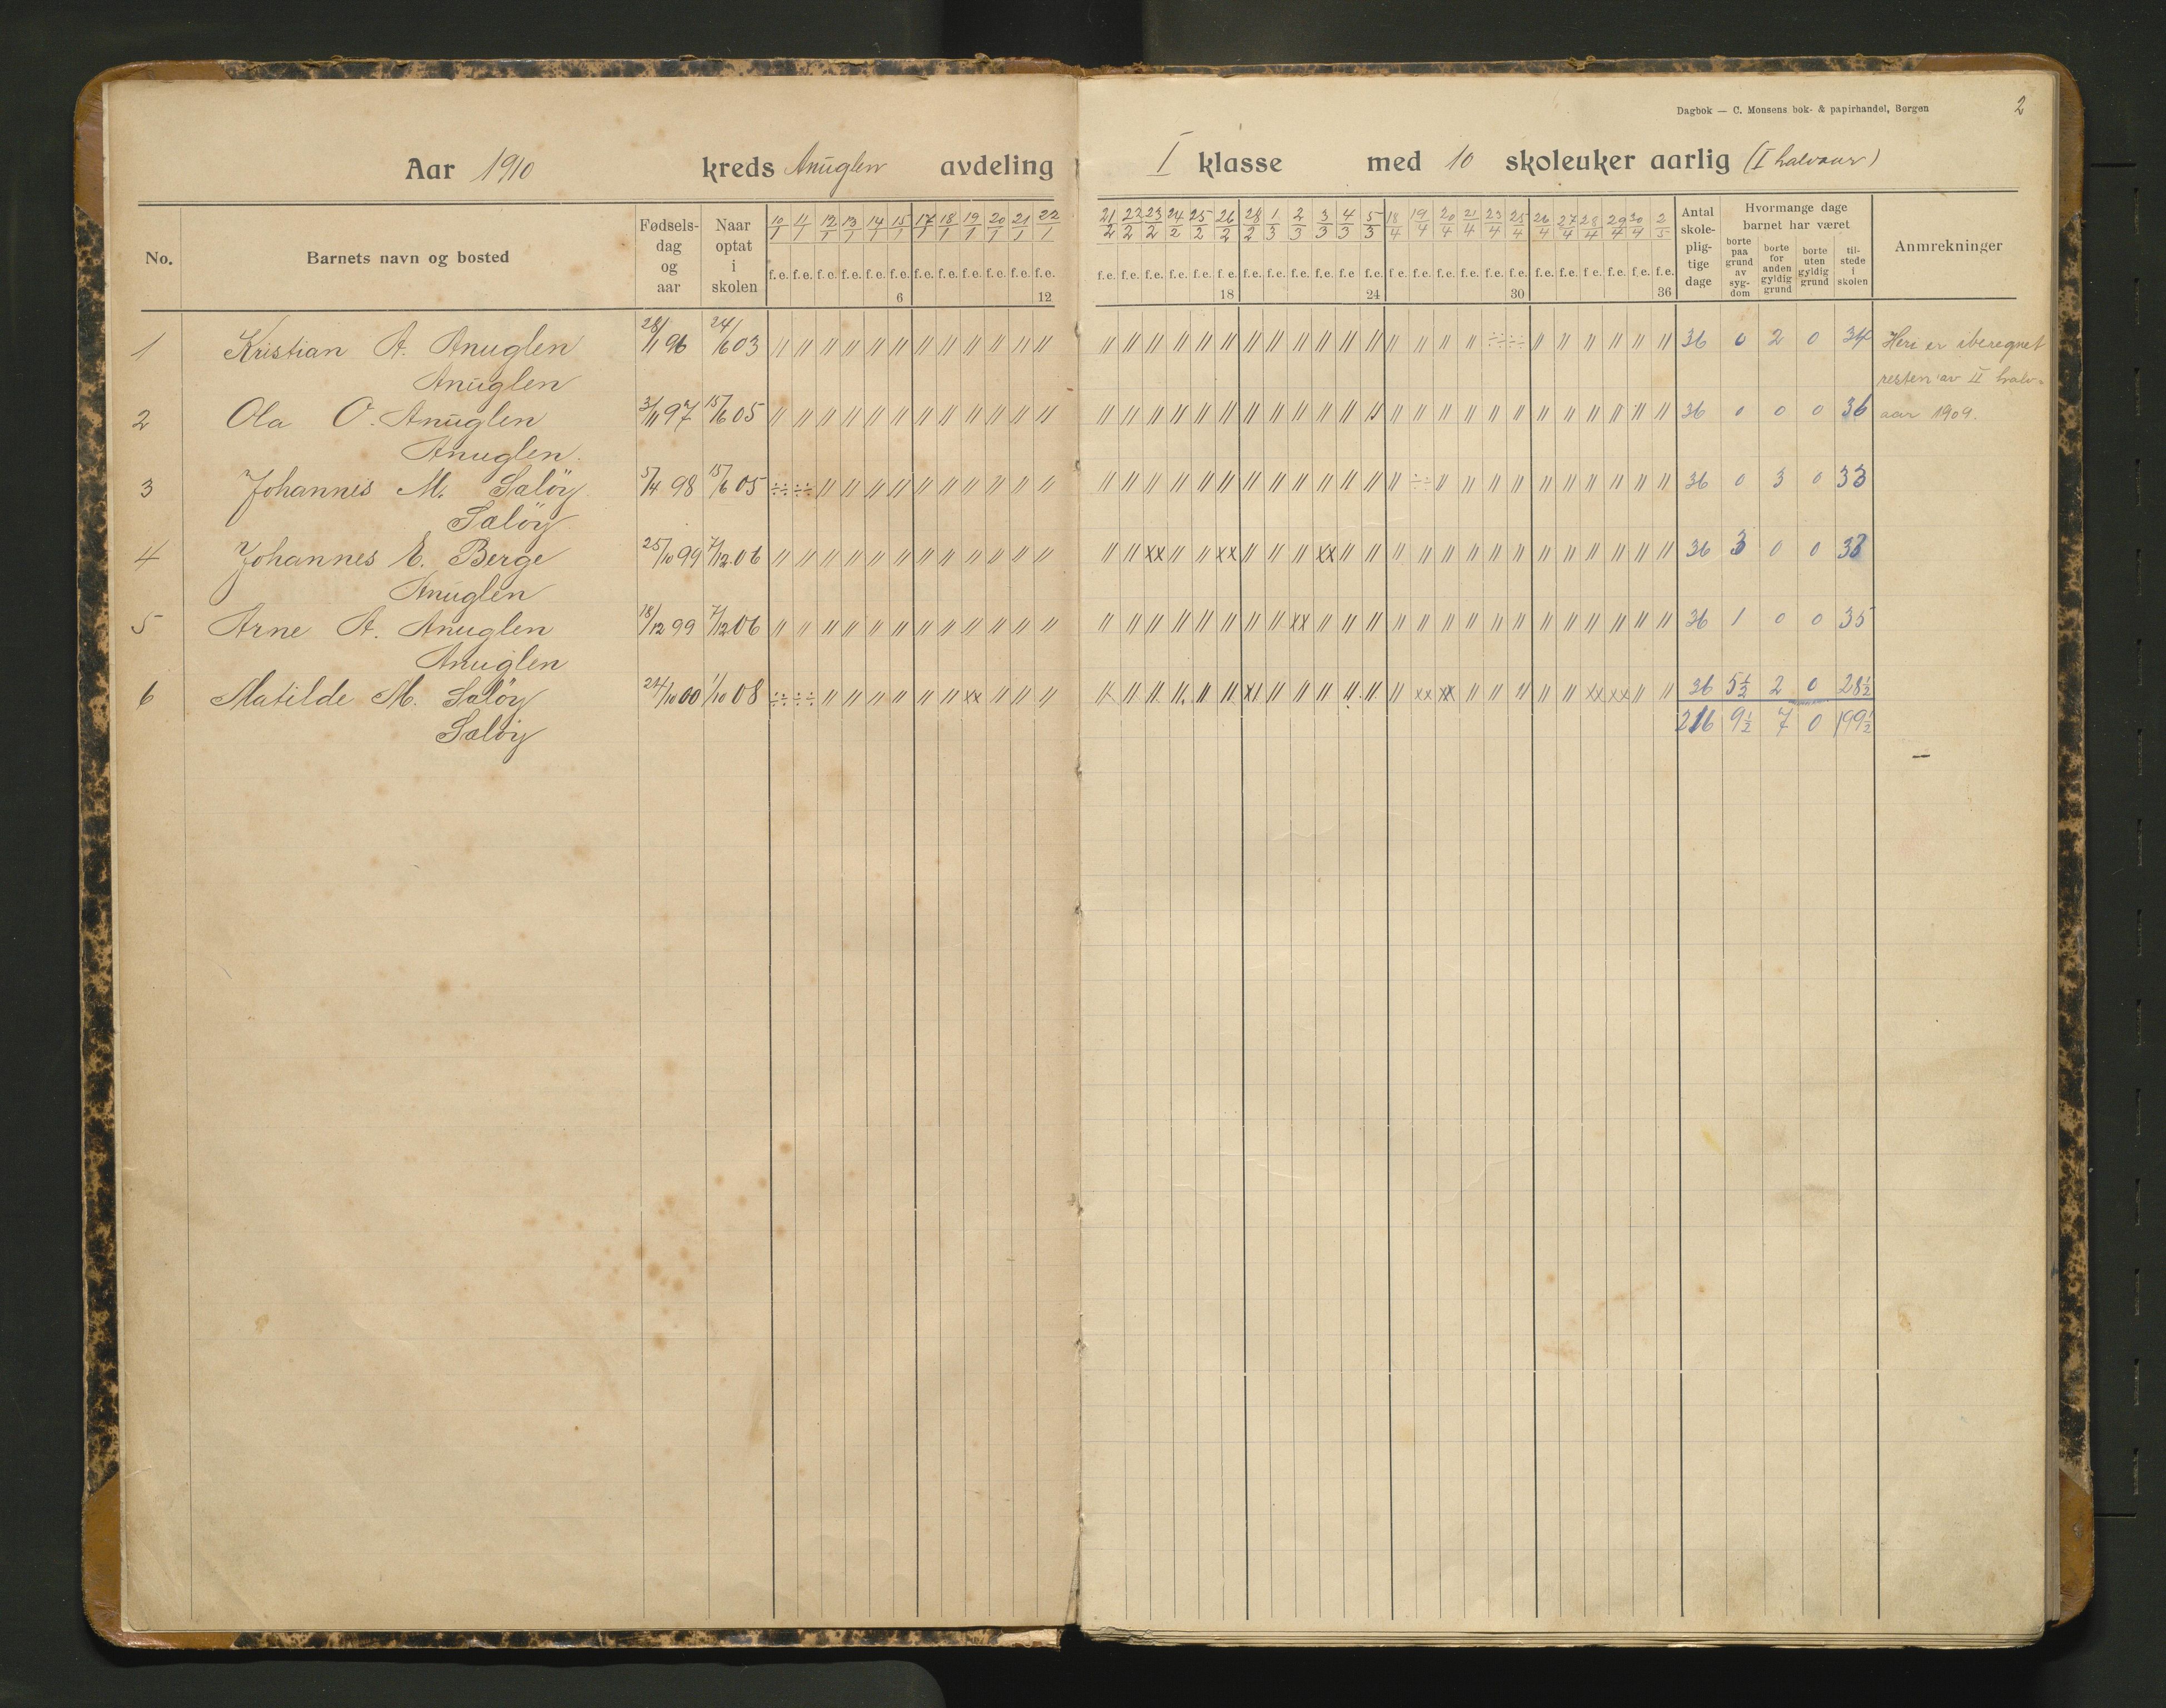 Dagbok — C. Monsens bok- & papirhandel, Bergen 2
Aar 1910 kreds Anuglen avdeling I klasse med 10 skoleuker aarlig (I halvaar)
No. Barnets navn og bosted Fødsels-dag og aar Naar optat i skolen 10/1 11/1 12/1 13/1 14/1 15/1 17/1 18/1 19/1 20/1 21/1 22/1 21/2 22/2 23/2 24/2 25/2 26/2 28/2 1/3 2/3 3/3 4/3 5/3 18/4 19/4 20/4 21/4 23/4 25/4 26/4 27/4 28/4 29/4 30/4 2/5 Antal skole-plig-tige dage Hvormange dage barnet har været borte paa grund av syg-dom borte for anden gyldig grund borte uten gyldig grund til-stede i skolen Anmrekninger
f.e. f.e. f.e. f.e. f.e. f.e. f.e. f.e. f.e. f.e. f.e. f.e. f.e. f.e. f.e. f.e. f.e. f.e. f.e. f.e. f.e. f.e. f.e. f.e. f.e. f.e. f.e. f.e. f.e. f.e. f.e. f.e. f.e. f.e. f.e. f.e.
6 12 18 24 30 36
1 Kristian A. Anuglen 28/1 96 24/6 03 36 0 2 0 34 Heri er iberegnet
Anuglen resten av II halv-
2 Ola O. Anuglen 3/11 97 15/6 05 36 0 0 0 36 aar 1909.
Anuglen.
3 Johannes M. Saløy 5/4 98 15/6 05 36 0 3 0 33
Saløy
4 Johannes E. Berge 25/10 99 7/12 06 36 3 0 0 33
Anuglen
5 Arne A. Anuglen 18/12 99 7/12 06 36 1 0 0 35
Anuglen
6 Matilde M. Saløy 24/10 00 1/10 08 36 5½ 2 0 28½
Saløy 216 9½ 7 0 199½